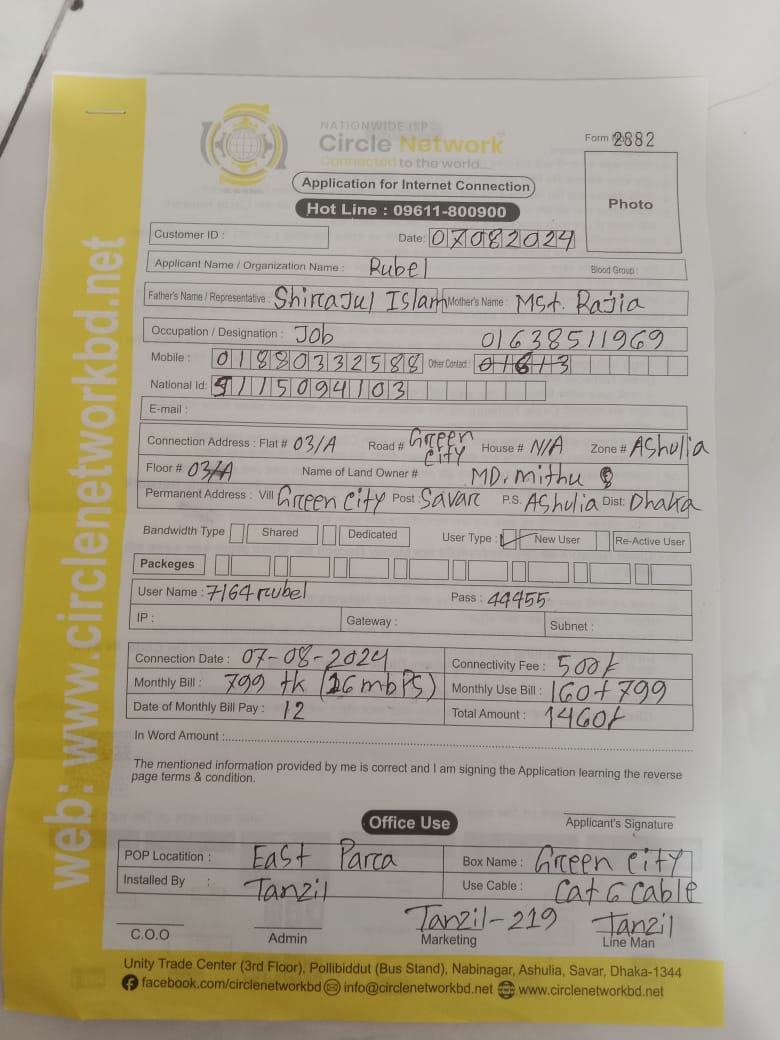 NATIONWIDE ISP
Circle Network
Connected to the world...
Form No. 2882
Application for Internet Connection
Hot Line : 09611-800900
Photo
Customer ID :
Date: 07082024
Applicant Name / Organization Name : Rubel Blood Group :
Father's Name / Representative : Shirajul Islam Mother's Name : Mst. Rajia
Occupation / Designation : Job 01638511969
Mobile : 01880332588 Other Contact : 01613
National Id: 5115094103
E-mail :
Connection Address : Flat # 03/A Road # Green City House # N/A Zone # Ashulia
Floor # 03/A Name of Land Owner # MD. Mithu
Permanent Address : Vill Green City Post : Savar P.S. Ashulia Dist: Dhaka
Bandwidth Type Shared Dedicated User Type : New User Re-Active User
Packeges
User Name : 7164rubel Pass : 44455
IP : Gateway : Subnet :
Connection Date : 07-08-2024 Connectivity Fee : 500t
Monthly Bill : 799 tk (26mbps) Monthly Use Bill : 160+799
Date of Monthly Bill Pay : 12 Total Amount : 1460t
In Word Amount :
The mentioned information provided by me is correct and I am signing the Application learning the reverse
page terms & condition.
Applicant's Signature
Office Use
POP Locatition : East Para Box Name : Green City
Installed By : Tanzil Use Cable : Cat 6 Cable
Tanzil-219 Tanzil
C.O.O Admin Marketing Line Man
Unity Trade Center (3rd Floor), Pollibiddut (Bus Stand), Nabinagar, Ashulia, Savar, Dhaka-1344
facebook.com/circlenetworkbd info@circlenetworkbd.net www.circlenetworkbd.net
web: www.circlenetworkbd.net